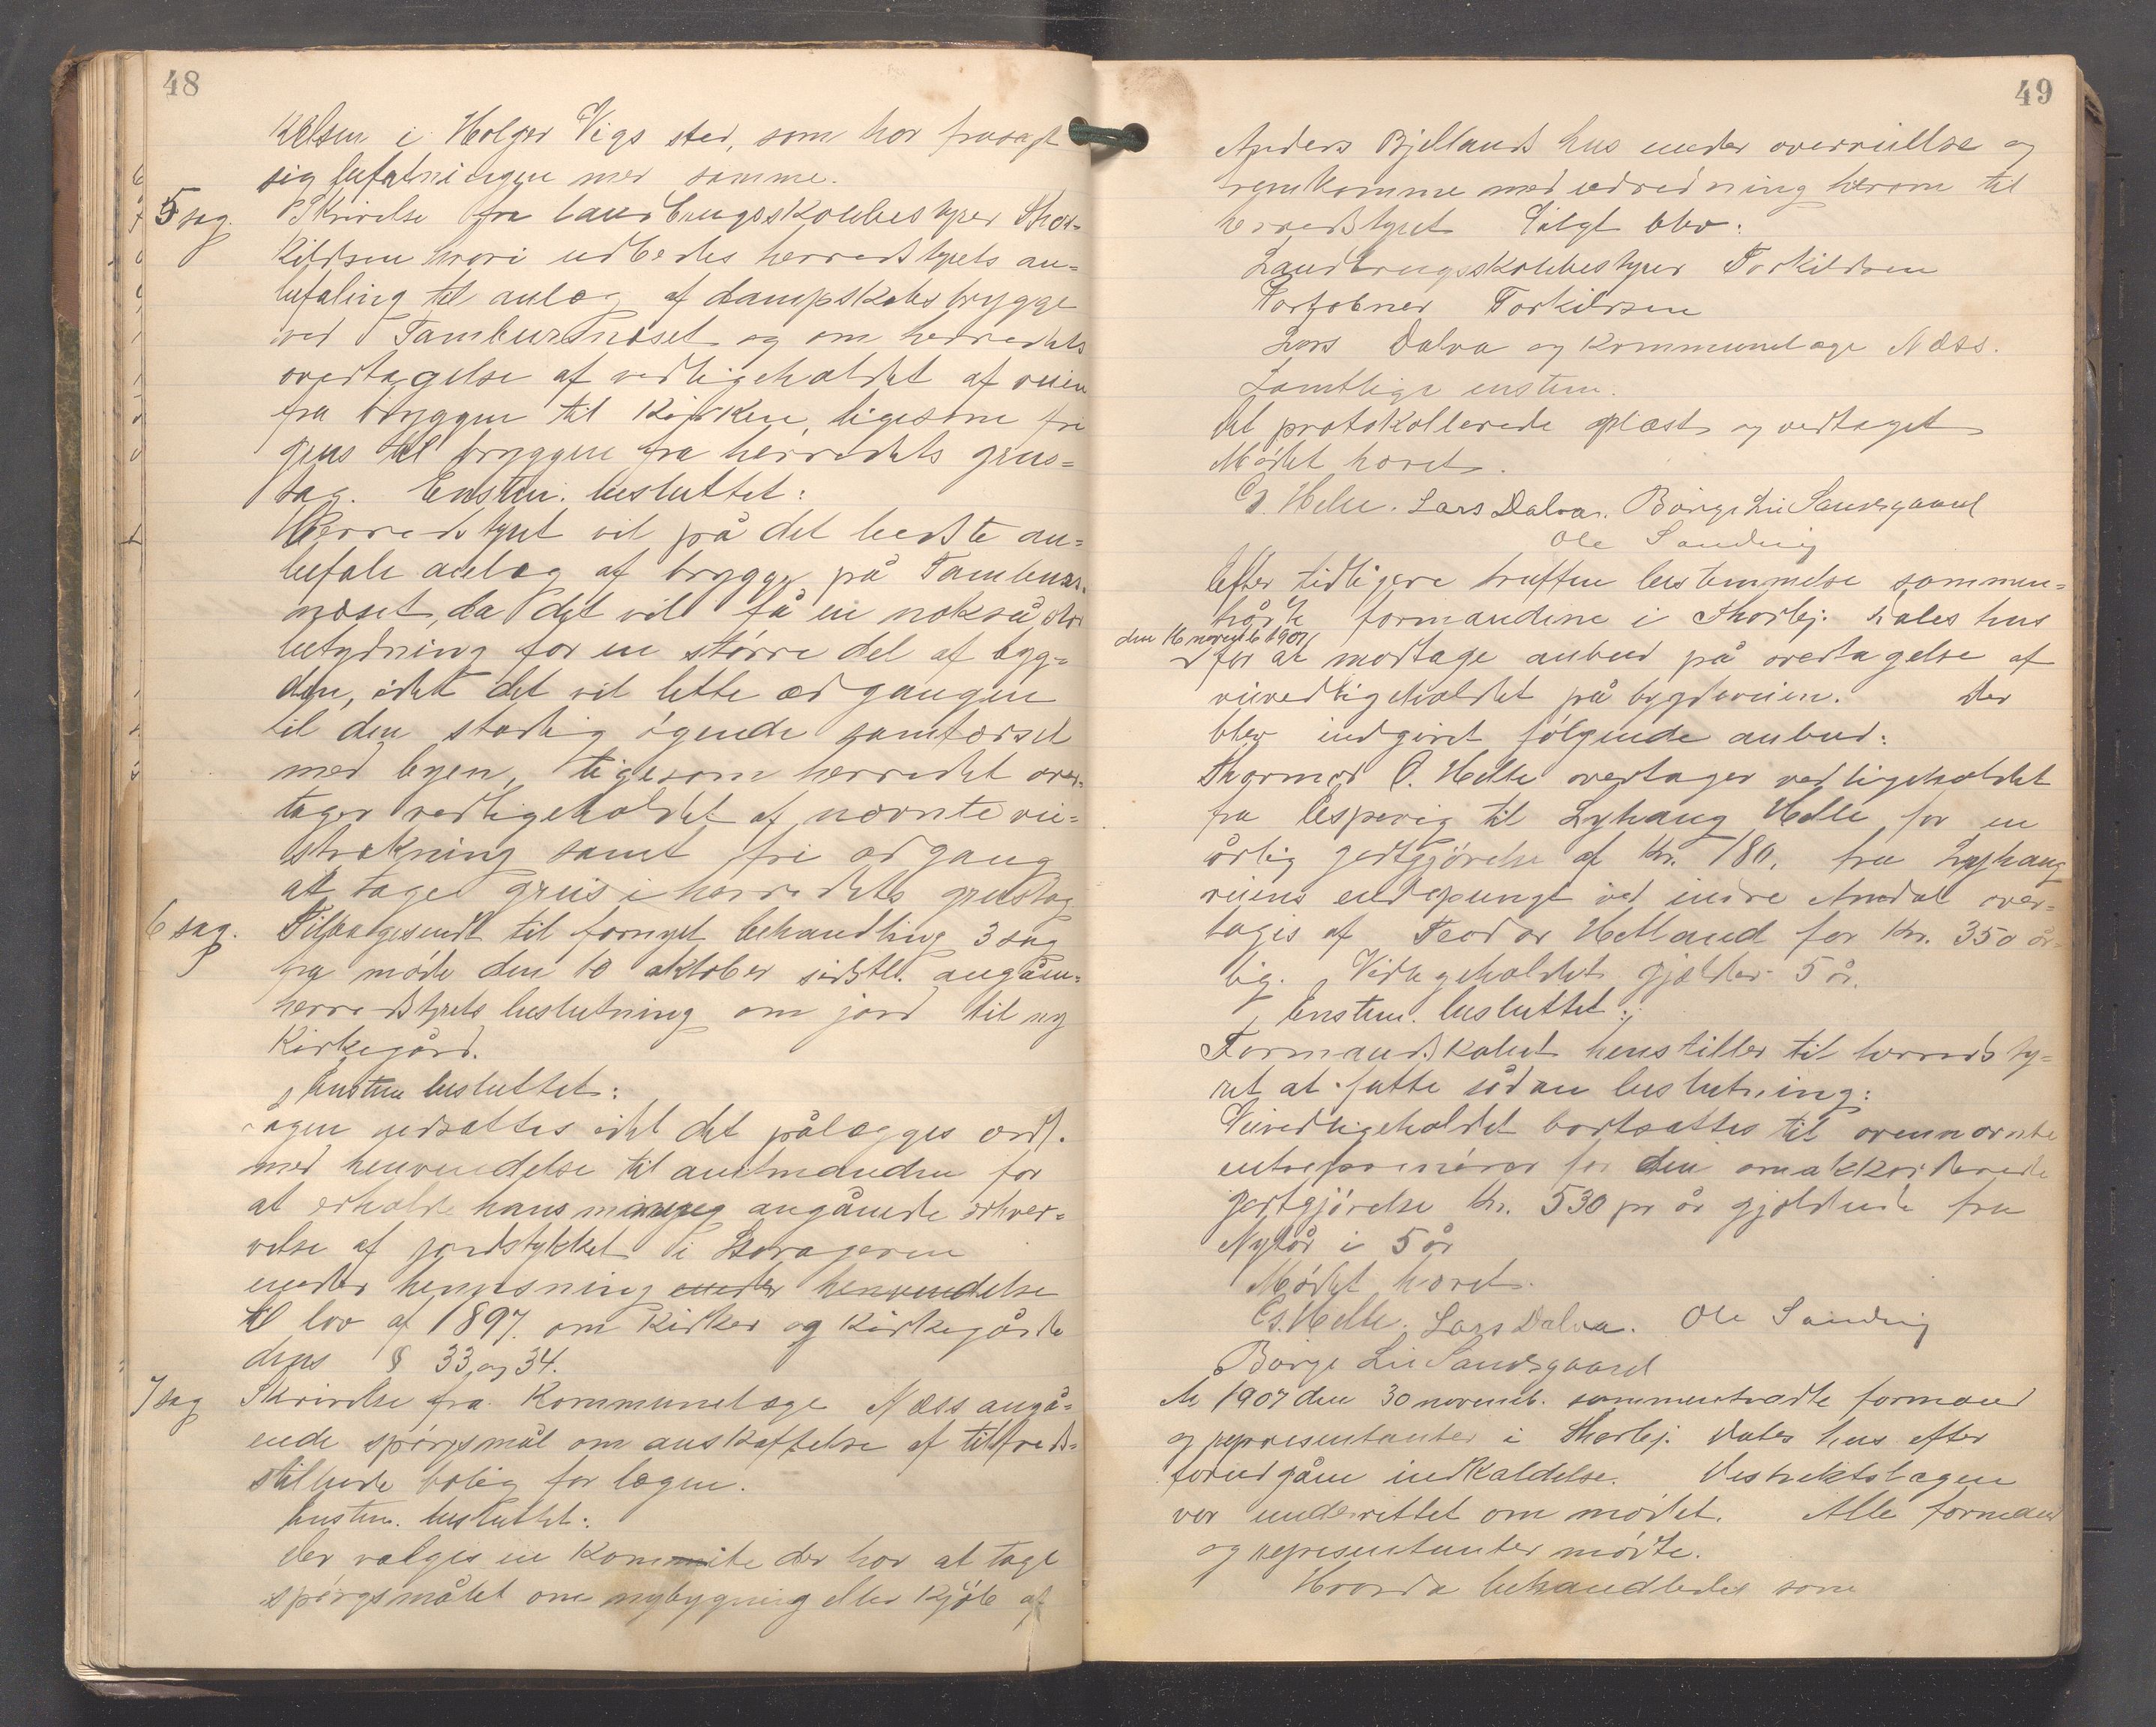 48
kelsen i Holger Vigs sted, som har frasagt
sig befatningen med samme.
5 sag. Skrivelse fra landbrugsskolebestyrer Thor-
kildsen hvori udbedes herredstyrets an-
befaling til anlæg af dampskibsbrygge
ved Tamburnæset og om herredets
overtagelse af vedligeholdet af veien
fra bryggen til kirken, ligesom fri
grus til bryggen fra herredets grus-
tag. Enstem. besluttet:
Herredstyret vil på det bedste an-
befale anlæg af brygge på Tambur-
næset, da det vil få en nokså stor
betydning for en større del af byg-
den, idet det vil lette adgangen
til den stadig øgende samfærsel
med byen, ligesom herredet over-
tager vedligeholdet af nævnte vei-
strækning samt fri adgang
at tage grus i herredets grustag
6 sag. Tilbagesendt til fornyet behandling 3 sag
fra møde den 10 oktober sidstl. angåen-
herredstyrets beslutning om jord til ny
kirkegård.
Enstem besluttet:
Sagen udsættes idet det pålægges ordf.
med henvendelse til amtmanden for
at erholde hans mening angående erhver-
velse af jordstykket i Storageren
under henvisning under henvendelse
til lov af 1897. om kirker og kirkegårde
dens § 33 og 34.
7 sag Skrivelse fra kommunelæge Næss angå-
ende spørgsmål om anskaffelse af tilfreds-
stillende bolig for lægen.
Enstem. besluttet:
Der vælges en kommite der har at tage
spørgsmålet om nybygning eller kjøb af
49
Anders Bjellands hus under overveielse og
fremkomme med udredning herom til
herredstyret Valgt blev:
Landbrugsskolebestyrer Torkildsen
Torkildsen
Lars Dalva og kommunelæge Næss.
Samtlige enstem.
Det protokollerede oplæst og vedtaget
Mødet hævet.
G. Helle. Lars Dalva. Börge Lii Sandsgaard
Ole Sandvig
Efter tidligere truffen bestemmelse sammen-
trådte formændene i Thorbj. Dales hus
den 16 novemb 1907
for at modtage anbud på overtagelse af
veivedligeholdet på bygdeveien. Der
blev indgivet følgende anbud:
Thormod O. Helle overtager vedligeholdet
fra Espevig til Lyhaug Helle for en
årlig godtgjørelse af kr. 180, fra Lyhaug
veiens endepungt ved indre Amdal over-
tages af Teodor Helland for kr. 350 år-
lig. Vedligeholdet gjælder 5 år.
Enstem. besluttet:
Formandskabet henstiller til herredsty-
ret at fatte sådan beslutning:
Veivedligeholdet bortsættes til ovennævnte
entreprenører for den omakkorderede
godtgjørelse kr. 530 pr år gjældende fra
Nytår i 5 år
Mødet hævet.
G. Helle. Lars Dalva. Ole Sandvig
Börge Lii Sandsgaard
År 1907 den 30 novemb. sammentrådte formænd
og representanter i Thorbj. Dales hus efter
forudgåen indkaldelse. Distriktslægen
var underrettet om mødet. Alle formænd
og representanter mødte.
Hvorda behandledes som